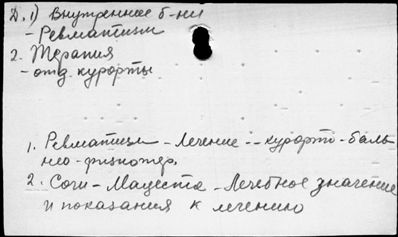 Д. 1) Внутренние б-ни
- Ревматизм
2. Терапия
- отд. курорты
1. Ревматизм - Лечение -- курорто-баль
нео-физиотер.
2. Сочи - Мацеста - Лечебное значение
и показания к лечению